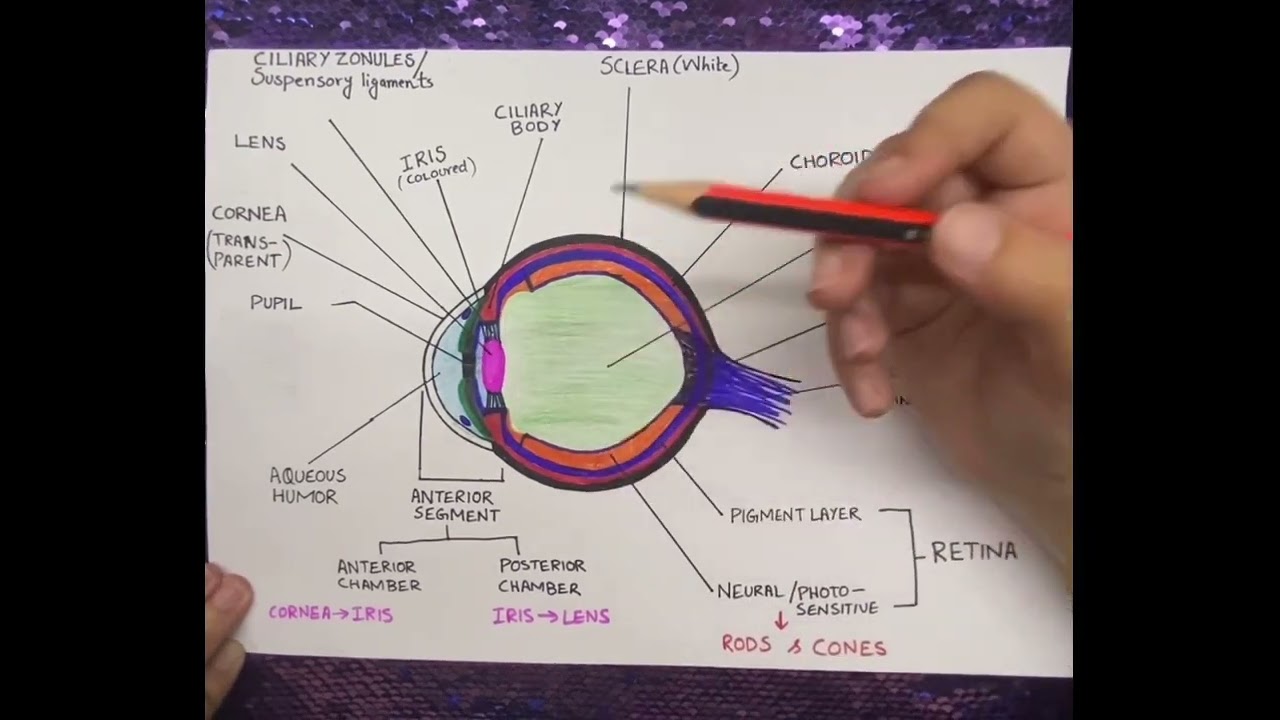 CILIARY ZONULES/
Suspensory ligaments
SCLERA (White)
CILIARY
BODY
LENS
IRIS
(COLOURED)
CHOROID
CORNEA
(TRANS-
PARENT)
PUPIL
AQUEOUS
HUMOR
ANTERIOR
SEGMENT
ANTERIOR
CHAMBER
POSTERIOR
CHAMBER
CORNEA→IRIS
IRIS→LENS
PIGMENT LAYER
RETINA
NEURAL/PHOTO-
SENSITIVE
↓
RODS & CONES